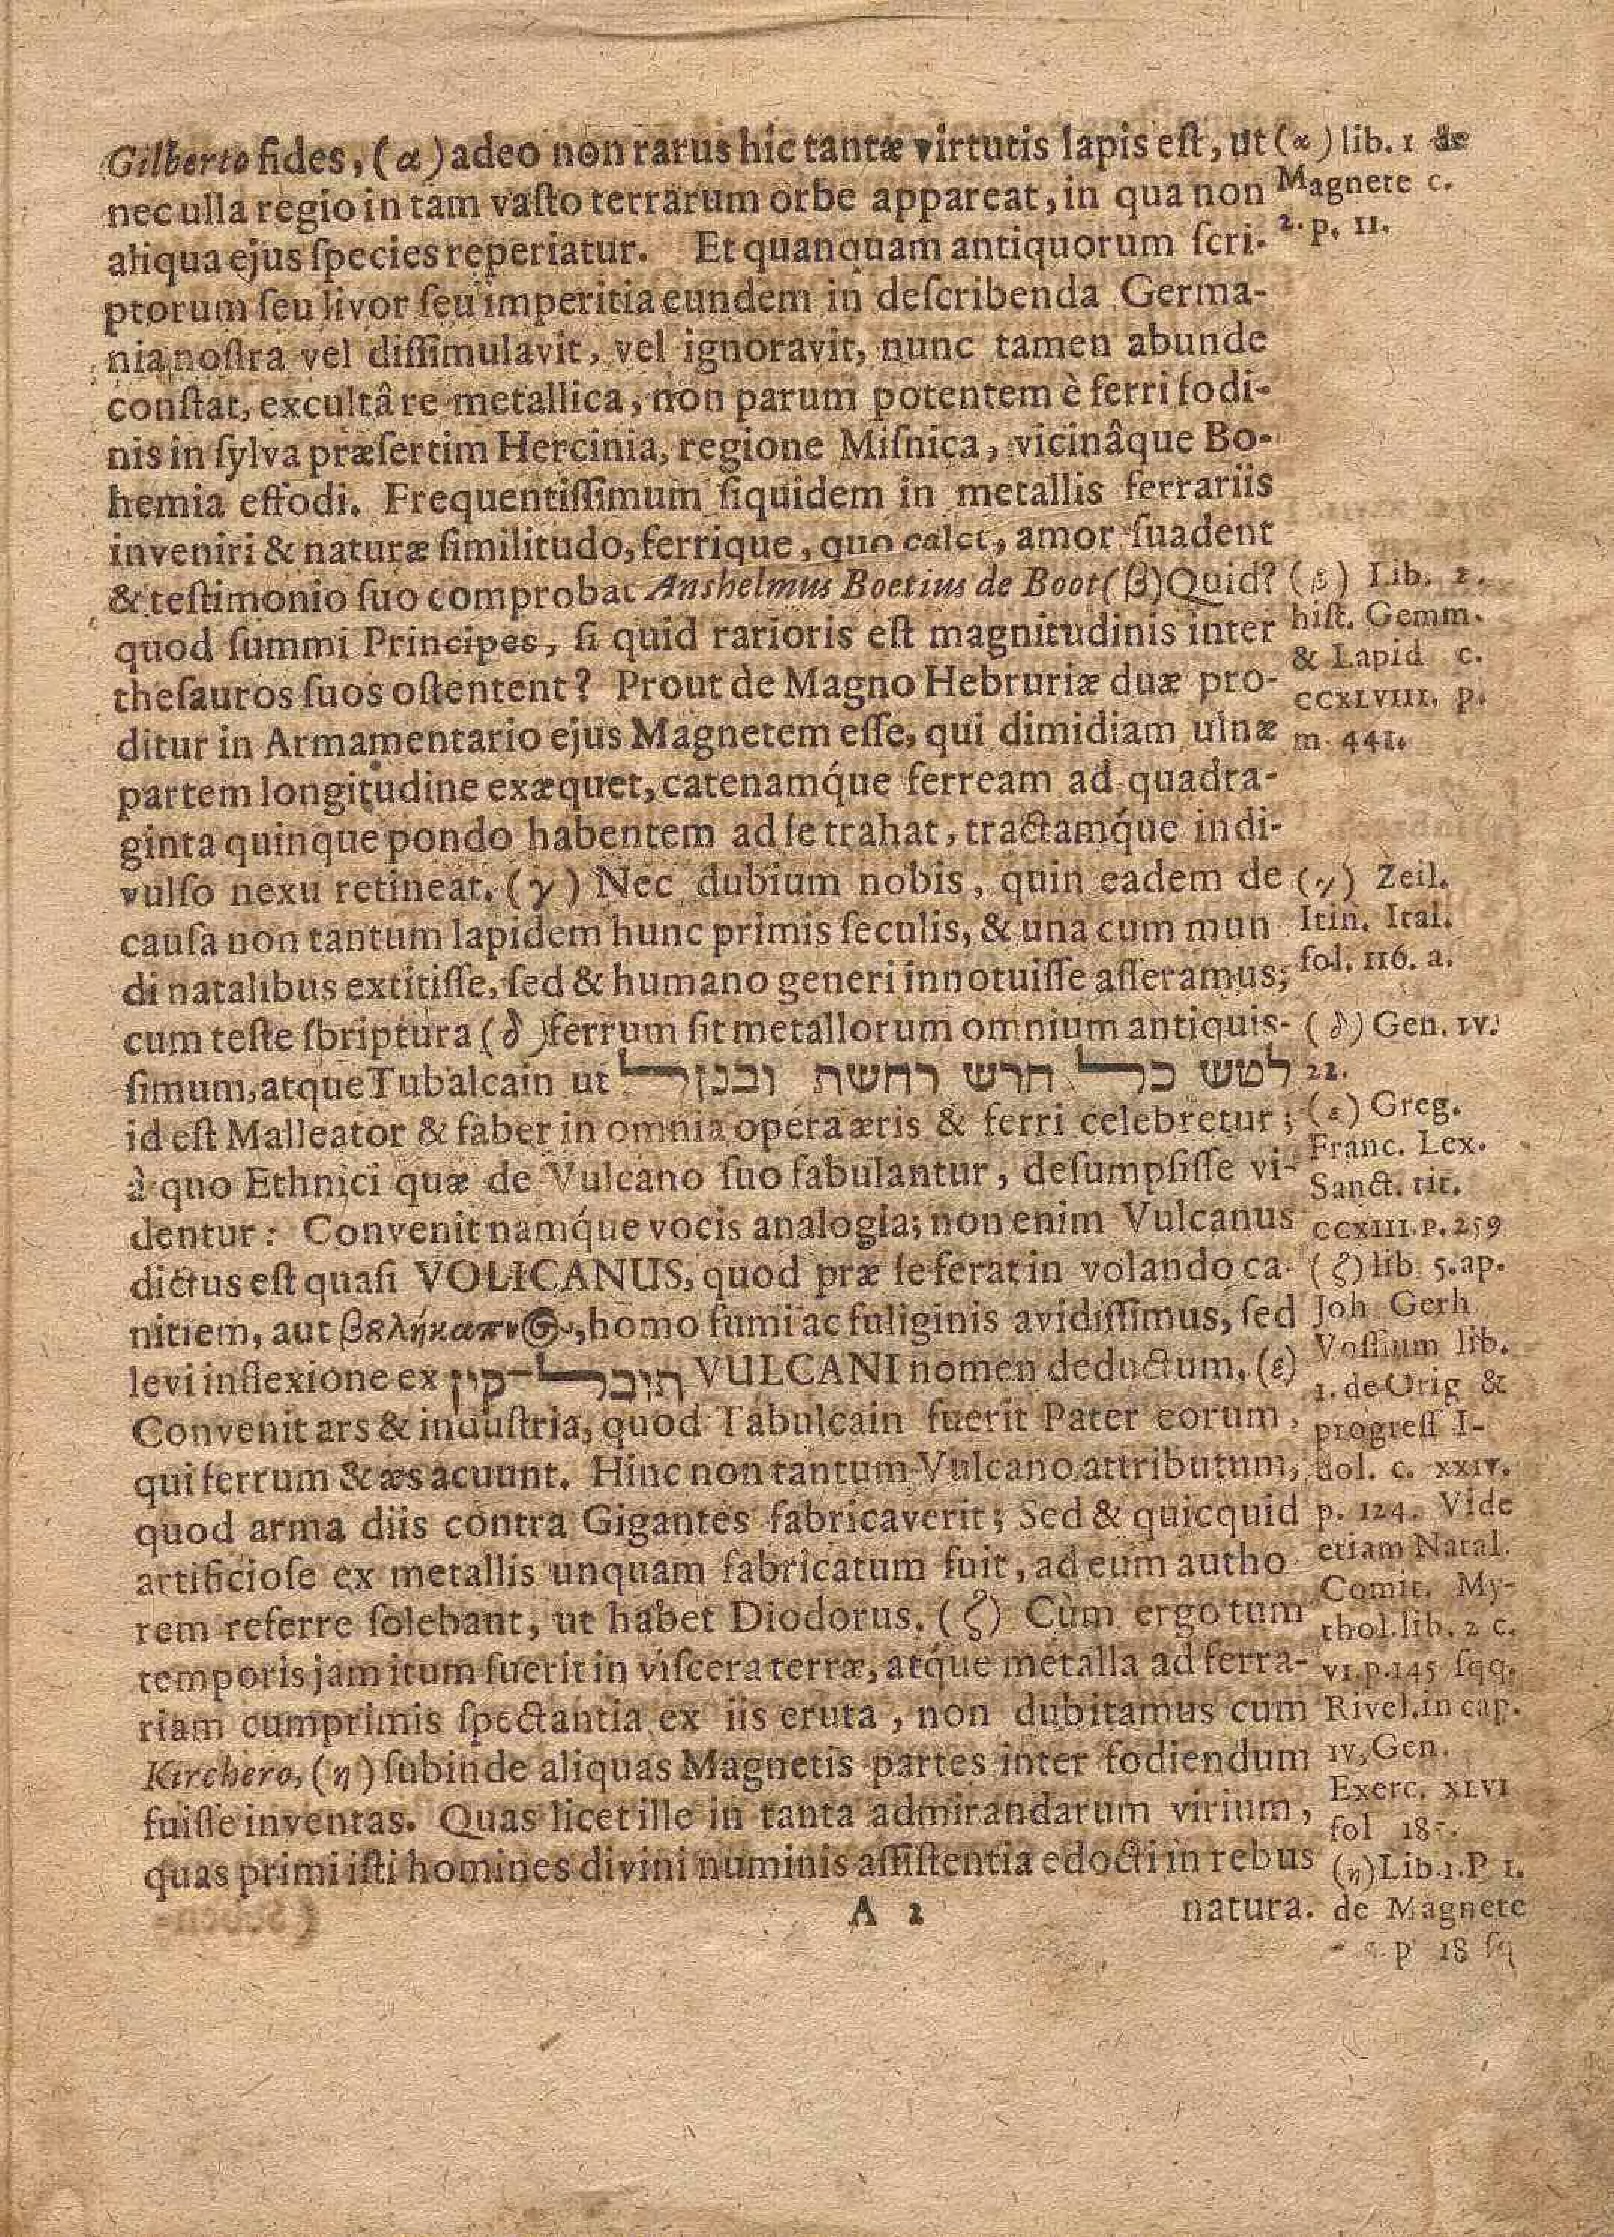 Gilberto fides, (α) adeo non rarus hic tantæ virtutis lapis eſt, ut
nec ulla regio in tam vaſto terrarum orbe appareat, in qua non
aliqua ejus ſpecies reperiatur. Et quanquam antiquorum ſcri-
ptorum ſeu livor ſeu imperitia eundem in deſcribenda Germa-
nia noſtra vel diſſimulavit, vel ignoravit, nunc tamen abunde
conſtat, excultâ re metallica, non parum potentem è ferri fodi-
nis in ſylva præſertim Hercinia, regione Miſnica, vicinâque Bo-
hemia effodi. Frequentiſſimum ſiquidem in metallis ferrariis
inveniri & naturæ ſimilitudo, ferrique, quo calet, amor ſuadent
& teſtimonio ſuo comprobat Anshelmus Boetius de Boot (β) Quid?
quod ſummi Principes, ſi quid rarioris eſt magnitudinis inter
theſauros ſuos oſtentent? Prout de Magno Hebruriæ duæ pro-
ditur in Armamentario ejus Magnetem eſſe, qui dimidiam ulnæ
partem longitudine exæquet, catenamq́ue ferream ad quadra-
ginta quinque pondo habentem ad ſe trahat, tractamq́ue indi-
vulſo nexu retineat. (γ) Nec dubium nobis, quin eadem de
cauſa non tantum lapidem hunc primis ſeculis, & una cum mun
di natalibus extitiſſe, ſed & humano generi innotuiſſe aſſeramus,
cum teſte ſbriptura (δ) ferrum ſit metallorum omnium antiquis-
ſimum, atque Tubalcain ut לטש כל חרש רחשת ובנזל
id eſt Malleator & faber in omnia opera æris & ferri celebretur;
à quo Ethnici quæ de Vulcano ſuo fabulantur, deſumpſiſſe vi-
dentur: Convenit namq́ue vocis analogia; non enim Vulcanus
dictus eſt quaſi VOLICANUS, quod præ ſe ferat in volando ca-
nitiem, aut homo fumi ac fuliginis avidiſſimus, ſed
levi inflexione ex תובל־קין VULCANI nomen deductum. (ε)
Convenit ars & induſtria, quod Tabulcain fuerit Pater eorum,
qui ferrum & æs acuunt. Hinc non tantum Vulcano attributum,
quod arma diis contra Gigantes fabricaverit; Sed & quicquid
artificioſe ex metallis unquam fabricatum fuit, ad eum autho
rem referre ſolebant, ut habet Diodorus. (ζ) Cùm ergo tum
temporis jam itum fuerit in viſcera terræ, atq́ue metalla ad ferra-
riam cumprimis ſpectantia ex iis eruta, non dubitamus cum
Kirchero, (η) ſubinde aliquas Magnetis partes inter fodiendum
fuiſſe inventas. Quas licet ille in tanta admirandarum virium,
quas primi iſti homines divini numinis aſſiſtentia edocti in rebus
A 2 natura.
(α) lib. 1 de
Magnete c.
2. p. 11.
(β) Lib. 2.
hiſt. Gemm.
& Lapid c.
CCXLVIII. p.
m. 441.
(γ) Zeil.
Itin. Ital.
fol. 116. a.
(δ) Gen. IV.
22.
(ε) Greg.
Franc. Lex.
Sanct. tit.
CCXIII. p. 259
(ζ) lib. 5. ap.
Joh Gerh
Voſſium lib.
1. de Orig &
progreſſ I-
dol. c. XXIV.
p. 124. Vide
etiam Natal.
Comit. My-
thol. lib. 2 c.
VI. p. 145 ſqq.
Rivel. in cap.
IV, Gen.
Exerc. XLVI
fol
(η) Lib. 1. P 1.
de Magnete
p 18 ſq